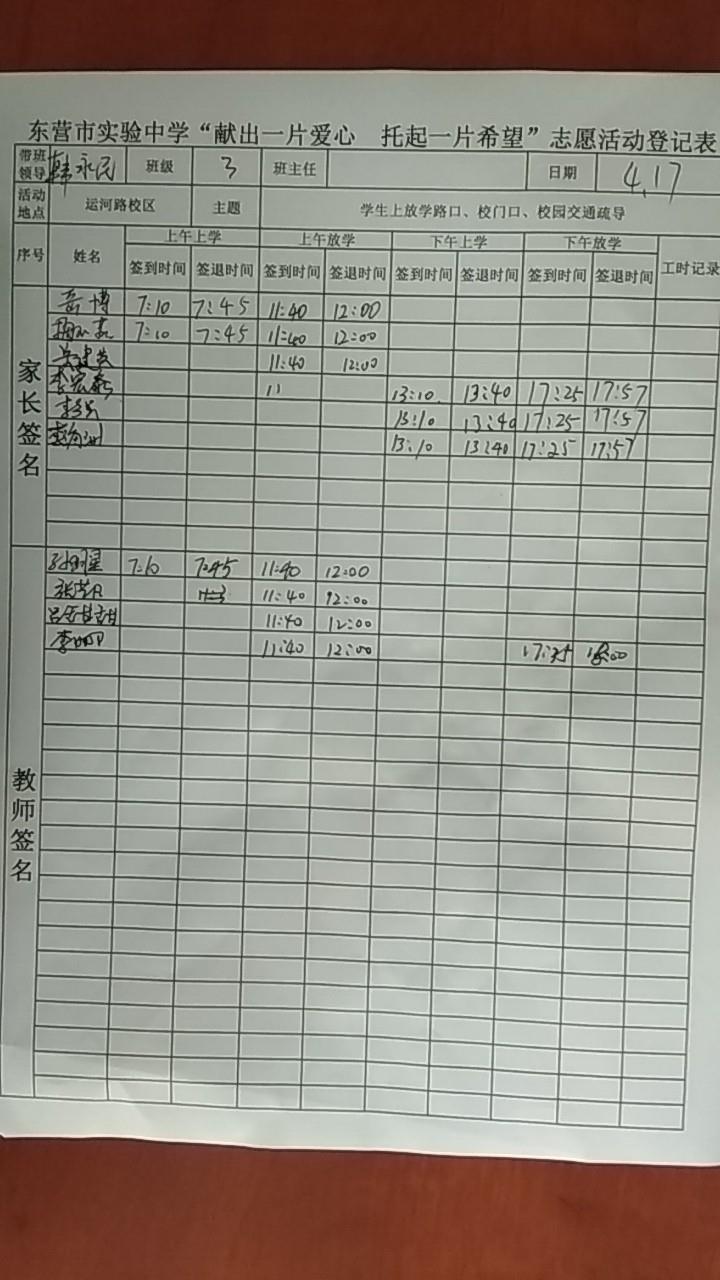 东营市实验中学“献出一片爱心 托起一片希望”志愿活动登记表
带班领导 韩永民 班级 3 班主任 日期 4.17
活动地点 运河路校区 主题 学生上放学路口、校门口、校园交通疏导
序号 姓名 上午上学 上午放学 下午上学 下午放学 工时记录
签到时间 签退时间 签到时间 签退时间 签到时间 签退时间 签到时间 签退时间
家长签名
岳博 7:10 7:45 11:40 12:00
7:10 7:45 11:40 12:00
11:40 12:00
11 13:10 13:40 17:25 17:57
13:10 13:40 17:25 17:57
13:10 13:40 17:25 17:57
教师签名
7:10 7:45 11:40 12:00
11:40 12:00
11:40 12:00
11:40 12:00 17:25 18:00